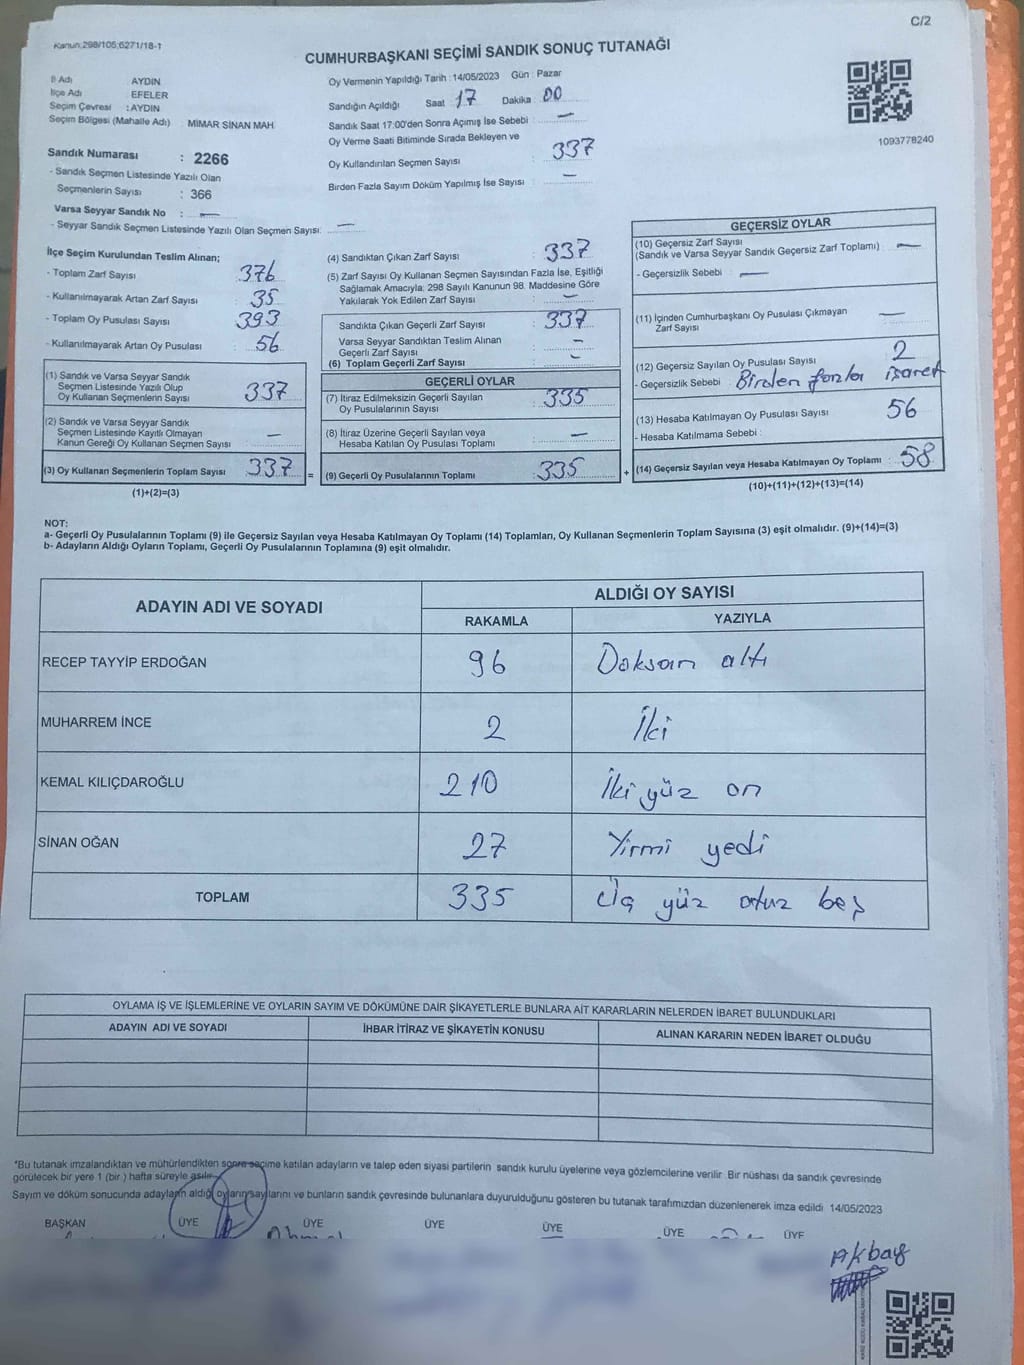 C/2
Kanun:298/105;6271/18-1
CUMHURBAŞKANI SEÇİMİ SANDIK SONUÇ TUTANAĞI
İl Adı AYDIN
İlçe Adı EFELER
Seçim Çevresi : AYDIN
Seçim Bölgesi (Mahalle Adı) MİMAR SİNAN MAH.
Sandık Numarası : 2266
- Sandık Seçmen Listesinde Yazılı Olan
Seçmenlerin Sayısı : 366
Varsa Seyyar Sandık No : —
- Seyyar Sandık Seçmen Listesinde Yazılı Olan Seçmen Sayısı: —
Oy Vermenin Yapıldığı Tarih : 14/05/2023 Gün : Pazar
Sandığın Açıldığı Saat 17 Dakika : 00
Sandık Saat 17:00'den Sonra Açımış İse Sebebi : —
Oy Verme Saati Bitiminde Sırada Bekleyen ve
Oy Kullandırılan Seçmen Sayısı : 337
Birden Fazla Sayım Döküm Yapılmış İse Sayısı : —
1093778240
İlçe Seçim Kurulundan Teslim Alınan;
- Toplam Zarf Sayısı : 376
- Kullanılmayarak Artan Zarf Sayısı : 35
- Toplam Oy Pusulası Sayısı : 393
- Kullanılmayarak Artan Oy Pusulası : 56
(1) Sandık ve Varsa Seyyar Sandık
Seçmen Listesinde Yazılı Olup
Oy Kullanan Seçmenlerin Sayısı : 337
(2) Sandık ve Varsa Seyyar Sandık
Seçmen Listesinde Kayıtlı Olmayan
Kanun Gereği Oy Kullanan Seçmen Sayısı : —
(3) Oy Kullanan Seçmenlerin Toplam Sayısı : 337 =
(1)+(2)=(3)
(4) Sandıktan Çıkan Zarf Sayısı : 337
(5) Zarf Sayısı Oy Kullanan Seçmen Sayısından Fazla İse, Eşitliği
Sağlamak Amacıyla; 298 Sayılı Kanunun 98. Maddesine Göre
Yakılarak Yok Edilen Zarf Sayısı : —
Sandıkta Çıkan Geçerli Zarf Sayısı : 337
Varsa Seyyar Sandıktan Teslim Alınan
Geçerli Zarf Sayısı : —
(6) Toplam Geçerli Zarf Sayısı : —
GEÇERLİ OYLAR
(7) İtiraz Edilmeksizin Geçerli Sayılan
Oy Pusulalarının Sayısı : 335
(8) İtiraz Üzerine Geçerli Sayılan veya
Hesaba Katılan Oy Pusulası Toplamı : —
(9) Geçerli Oy Pusulalarının Toplamı : 335 +
GEÇERSİZ OYLAR
(10) Geçersiz Zarf Sayısı
(Sandık ve Varsa Seyyar Sandık Geçersiz Zarf Toplamı) : —
- Geçersizlik Sebebi : —
(11) İçinden Cumhurbaşkanı Oy Pusulası Çıkmayan
Zarf Sayısı : —
(12) Geçersiz Sayılan Oy Pusulası Sayısı : 2
- Geçersizlik Sebebi : Birden fazla işaret
(13) Hesaba Katılmayan Oy Pusulası Sayısı 56
- Hesaba Katılmama Sebebi :
(14) Geçersiz Sayılan veya Hesaba Katılmayan Oy Toplamı : 58
(10)+(11)+(12)+(13)=(14)
NOT:
a- Geçerli Oy Pusulalarının Toplamı (9) ile Geçersiz Sayılan veya Hesaba Katılmayan Oy Toplamı (14) Toplamları, Oy Kullanan Seçmenlerin Toplam Sayısına (3) eşit olmalıdır. (9)+(14)=(3)
b- Adayların Aldığı Oyların Toplamı, Geçerli Oy Pusulalarının Toplamına (9) eşit olmalıdır.
ADAYIN ADI VE SOYADI ALDIĞI OY SAYISI
RAKAMLA YAZIYLA
RECEP TAYYİP ERDOĞAN 96 Doksan altı
MUHARREM İNCE 2 İki
KEMAL KILIÇDAROĞLU 210 İki yüz on
SİNAN OĞAN 27 Yirmi yedi
TOPLAM 335 Üç yüz otuz beş
OYLAMA İŞ VE İŞLEMLERİNE VE OYLARIN SAYIM VE DÖKÜMÜNE DAİR ŞİKAYETLERLE BUNLARA AİT KARARLARIN NELERDEN İBARET BULUNDUKLARI
ADAYIN ADI VE SOYADI İHBAR İTİRAZ VE ŞİKAYETİN KONUSU ALINAN KARARIN NEDEN İBARET OLDUĞU
*Bu tutanak imzalandıktan ve mühürlendikten sonra seçime katılan adayların ve talep eden siyasi partilerin sandık kurulu üyelerine veya gözlemcilerine verilir. Bir nüshası da sandık çevresinde
görülecek bir yere 1 (bir ) hafta süreyle asılır.
Sayım ve döküm sonucunda adayların aldığı oyların sayılarını ve bunların sandık çevresinde bulunanlara duyurulduğunu gösteren bu tutanak tarafımızdan düzenlenerek imza edildi 14/05/2023
BAŞKAN ÜYE ÜYE ÜYE ÜYE ÜYE ÜYE
Akbaş